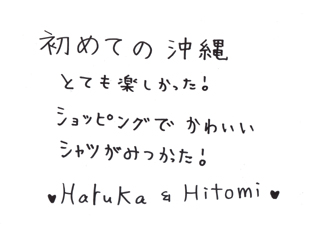 初めての 沖縄
とても楽しかった!
ショッピングで かわいい
シャツがみつかった!
♥Haruka & Hitomi♥